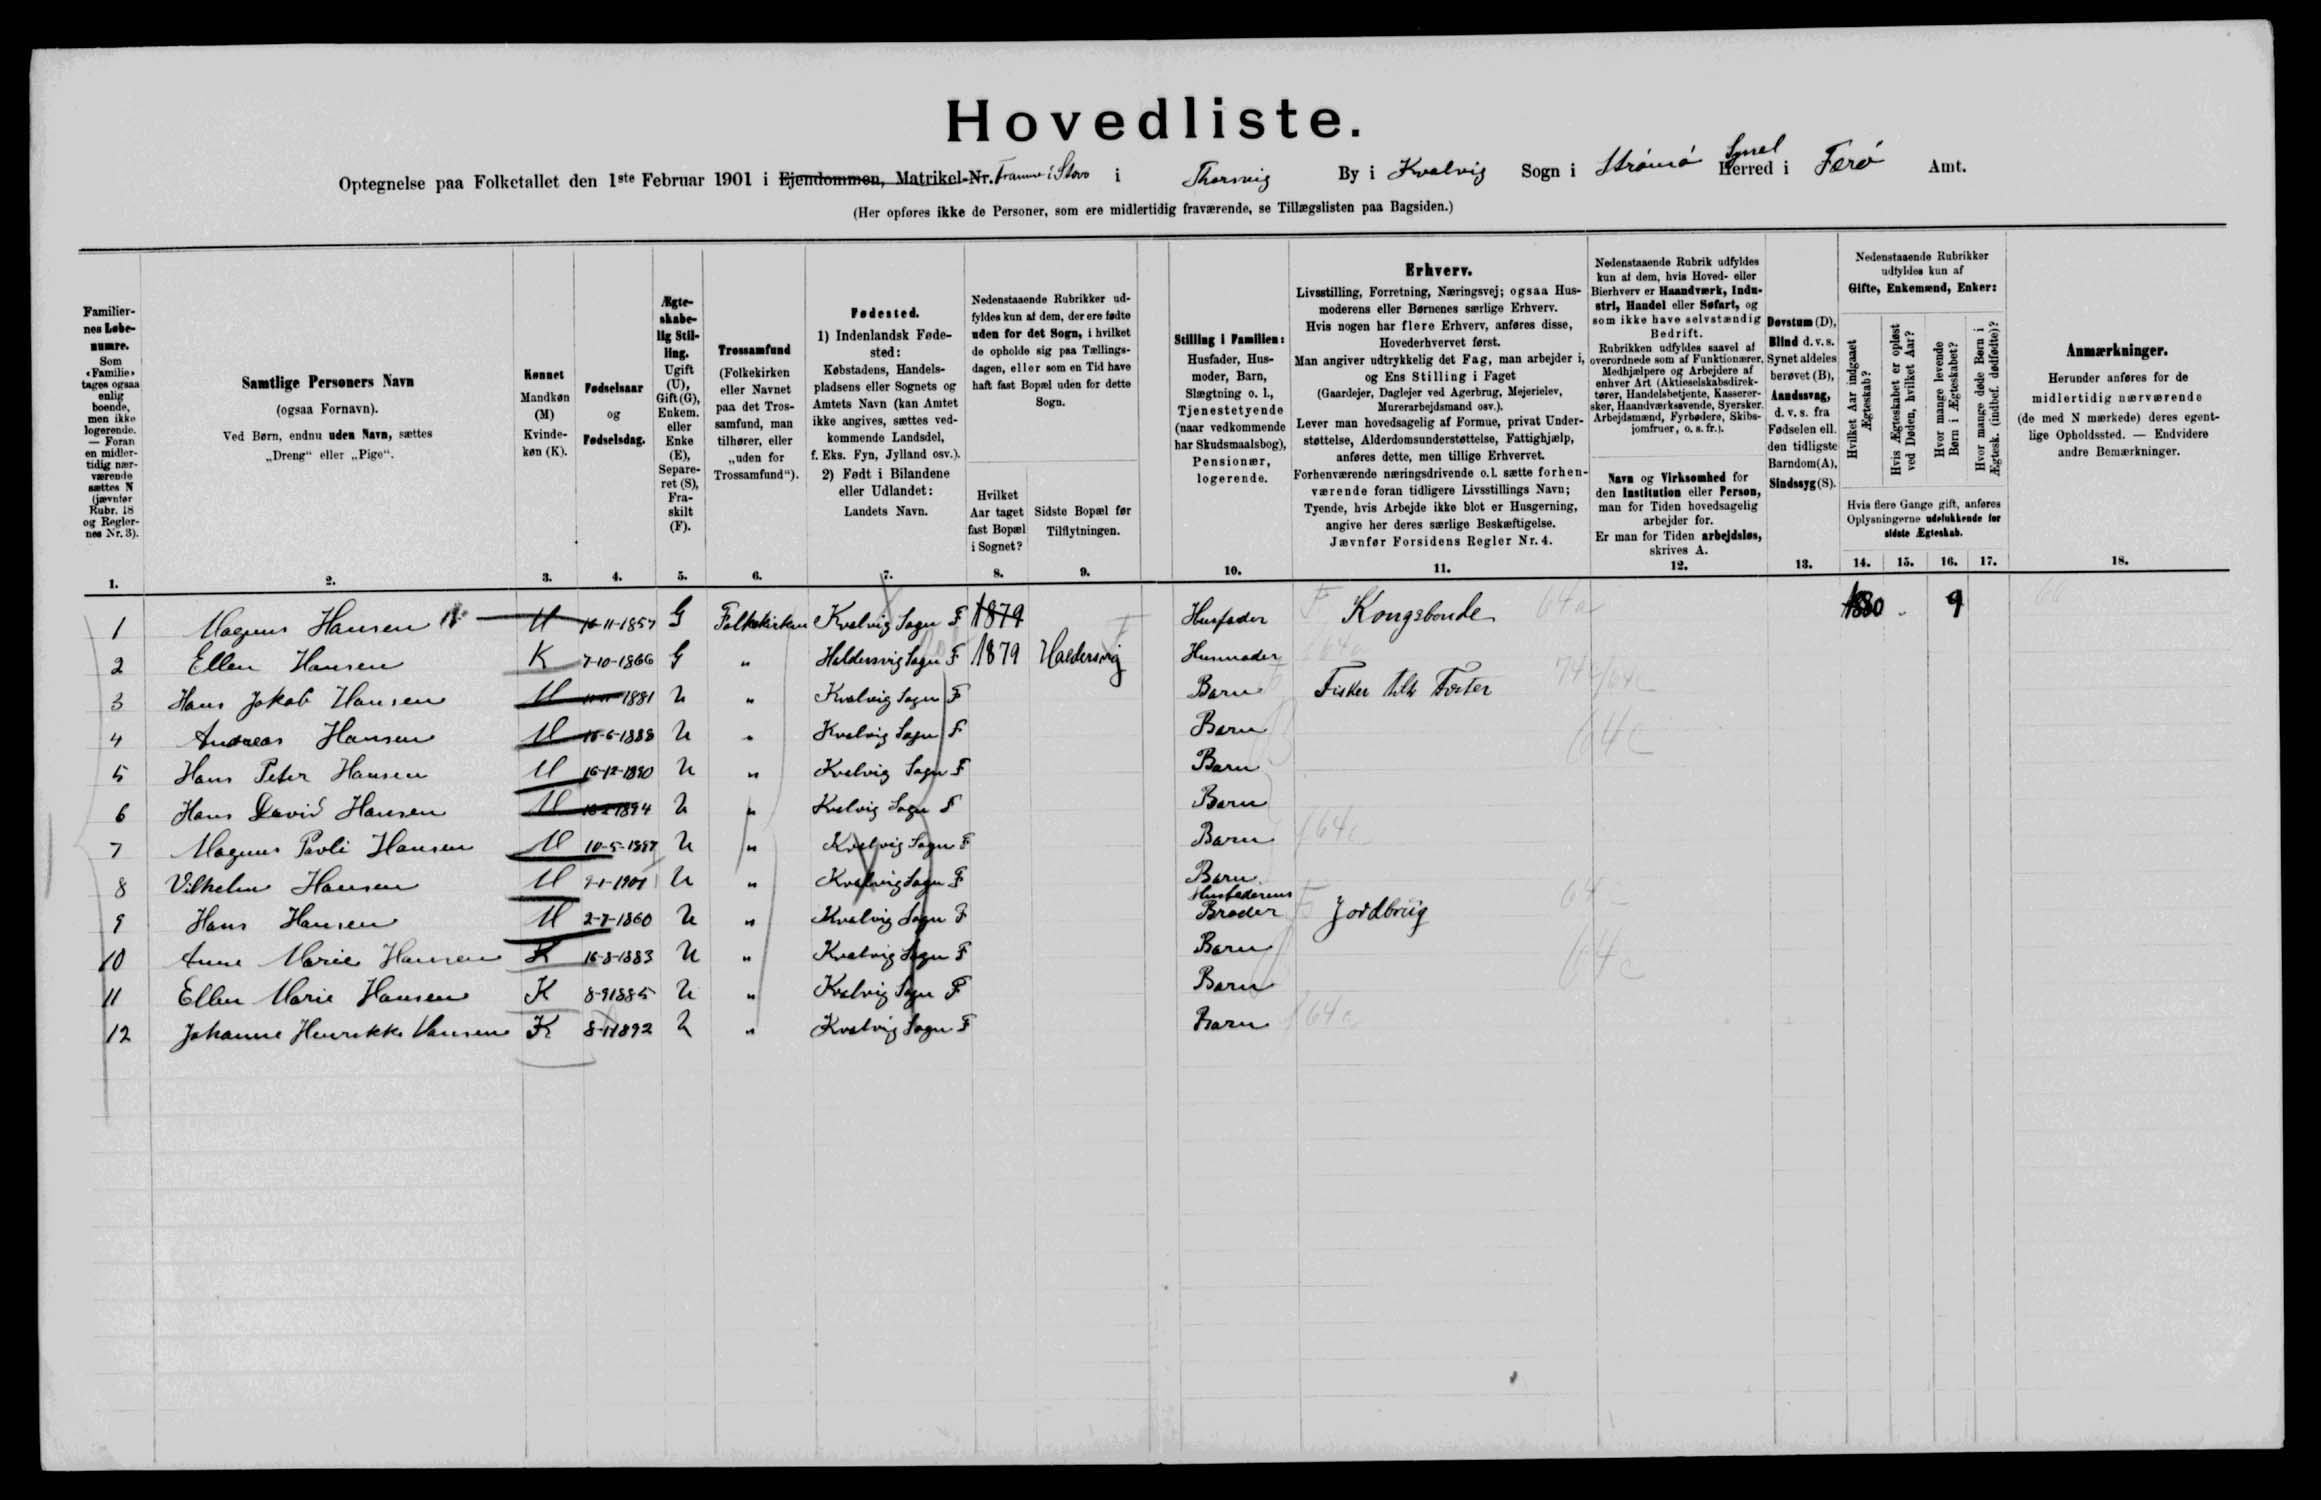 Hovedliste.
Optegnelse paa Folketallet den 1ste Februar 1901 i Ejendommen, Matrikel-Nr. Framme i Stovo i Thorsvig By i Kvalvig Sogn i Strömö Syssel Herred i Færö Amt.
(Her opføres ikke de Personer, som ere midlertidig fraværende, se Tillægslisten paa Bagsiden.)
Familiernes Løbenumre.
Som «Familie» tages ogsaa enlig boende, men ikke logerende. — Foran en midlertidig nærværende sættes N (jævnfør Rubr. 18 og Reglernes Nr. 3).
1.
Samtlige Personers Navn
(ogsaa Fornavn).
Ved Børn, endnu uden Navn, sættes
„Dreng“ eller „Pige“.
2.
Kønnet
Mandkøn (M)
Kvindekøn (K).
3.
Fødselsaar
og
Fødselsdag.
4.
Ægteskabelig Stilling.
Ugift (U), Gift (G), Enkem. eller Enke (E), Separeret (S), Fraskilt (F).
5.
Trossamfund
(Folkekirken eller Navnet paa det Trossamfund, man tilhører, eller „uden for Trossamfund“).
6.
Fødested.
1) Indenlandsk Fødested:
Købstadens, Handelspladsens eller Sognets og Amtets Navn (kan Amtet ikke angives, sættes vedkommende Landsdel, f. Eks. Fyn, Jylland osv.).
2) Født i Bilandene eller Udlandet:
Landets Navn.
7.
Nedenstaaende Rubrikker udfyldes kun af dem, der ere fødte uden for det Sogn, i hvilket de opholde sig paa Tællingsdagen, eller som en Tid have haft fast Bopæl uden for dette Sogn.
Hvilket Aar taget fast Bopæl i Sognet?
8.
Sidste Bopæl før Tilflytningen.
9.
Stilling i Familien:
Husfader, Husmoder, Barn, Slægtning o. l., Tjenestetyende (naar vedkommende har Skudsmaalsbog), Pensionær, logerende.
10.
Erhverv.
Livsstilling, Forretning, Næringsvej; ogsaa Husmoderens eller Børnenes særlige Erhverv.
Hvis nogen har flere Erhverv, anføres disse, Hovederhvervet først.
Man angiver udtrykkelig det Fag, man arbejder i, og Ens Stilling i Faget
(Gaardejer, Daglejer ved Agerbrug, Mejerielev, Murerarbejdsmand osv.).
Lever man hovedsagelig af Formue, privat Understøttelse, Alderdomsunderstøttelse, Fattighjælp, anføres dette, men tillige Erhvervet.
Forhenværende næringsdrivende o. l. sætte forhenværende foran tidligere Livsstillings Navn;
Tyende, hvis Arbejde ikke blot er Husgerning, angive her deres særlige Beskæftigelse.
Jævnfør Forsidens Regler Nr. 4.
11.
Nedenstaaende Rubrik udfyldes kun af dem, hvis Hoved- eller Bierhverv er Haandværk, Industri, Handel eller Søfart, og som ikke have selvstændig Bedrift.
Rubrikken udfyldes saavel af overordnede som af Funktionærer, Medhjælpere og Arbejdere af enhver Art (Aktieselskabsdirektører, Handelsbetjente, Kassererskker, Haandværkssvende, Syersker, Arbejdsmænd, Fyrbødere, Skibsjomfruer, o. s. fr.).
Navn og Virksomhed for den Institution eller Person, man for Tiden hovedsagelig arbejder for.
Er man for Tiden arbejdsløs, skrives A.
12.
Døvstum (D), Blind d. v. s. Synet aldeles berøvet (B), Aandssvag, d. v. s. fra Fødselen ell. den tidligste Barndom (A), Sindssyg (S).
13.
Nedenstaaende Rubrikker udfyldes kun af
Gifte, Enkemænd, Enker:
Hvilket Aar indgaaet Ægteskab?
Hvis Ægteskabet er opløst ved Døden, hvilket Aar?
Hvor mange levende Børn i Ægteskabet?
Hvor mange døde Børn i Ægtesk. (indbef. dødfødte)?
Hvis flere Gange gift, anføres Oplysningerne udelukkende for sidste Ægteskab.
14. 15. 16. 17.
Anmærkninger.
Herunder anføres for de midlertidig nærværende (de med N mærkede) deres egentlige Opholdssted. — Endvidere andre Bemærkninger.
18.
1 Magnus Hansen M 16-11-1857 G Folkekirken Kvalvig Sogn F 1879 Husfader F Kongsbonde 64a 1880 9
2 Ellen Hansen K 7-10-1866 G " Haldersvig Sogn F 1879 Haldersvig Husmoder 64a
3 Hans Jakob Hansen M 11-11-1881 U " Kvalvig Sogn F Barn Fisker 74c/64c
4 Andreas Hansen M 15-6-1888 U " Kvalvig Sogn F Barn 64c
5 Hans Peter Hansen M 16-12-1890 U " Kvalvig Sogn F Barn
6 Hans David Hansen M 1894 U " Kvalvig Sogn F Barn
7 Magnus Pavli Hansen M 10-5-1897 U " Kvalvig Sogn F Barn 64c
8 Vilhelm Hansen M 9-1-1901 U " Kvalvig Sogn F Barn
9 Hans Hansen M 2-7-1860 U " Kvalvig Sogn F Husfaderens Broder Jordbrug 64c
10 Anne Marie Hansen K 16-8-1883 U " Kvalvig Sogn F Barn 64c
11 Ellen Marie Hansen K 8-9 1885 U " Kvalvig Sogn F Barn
12 Johanne Henrikke Hansen K 8-11892 U " Kvalvig Sogn F Barn 64c